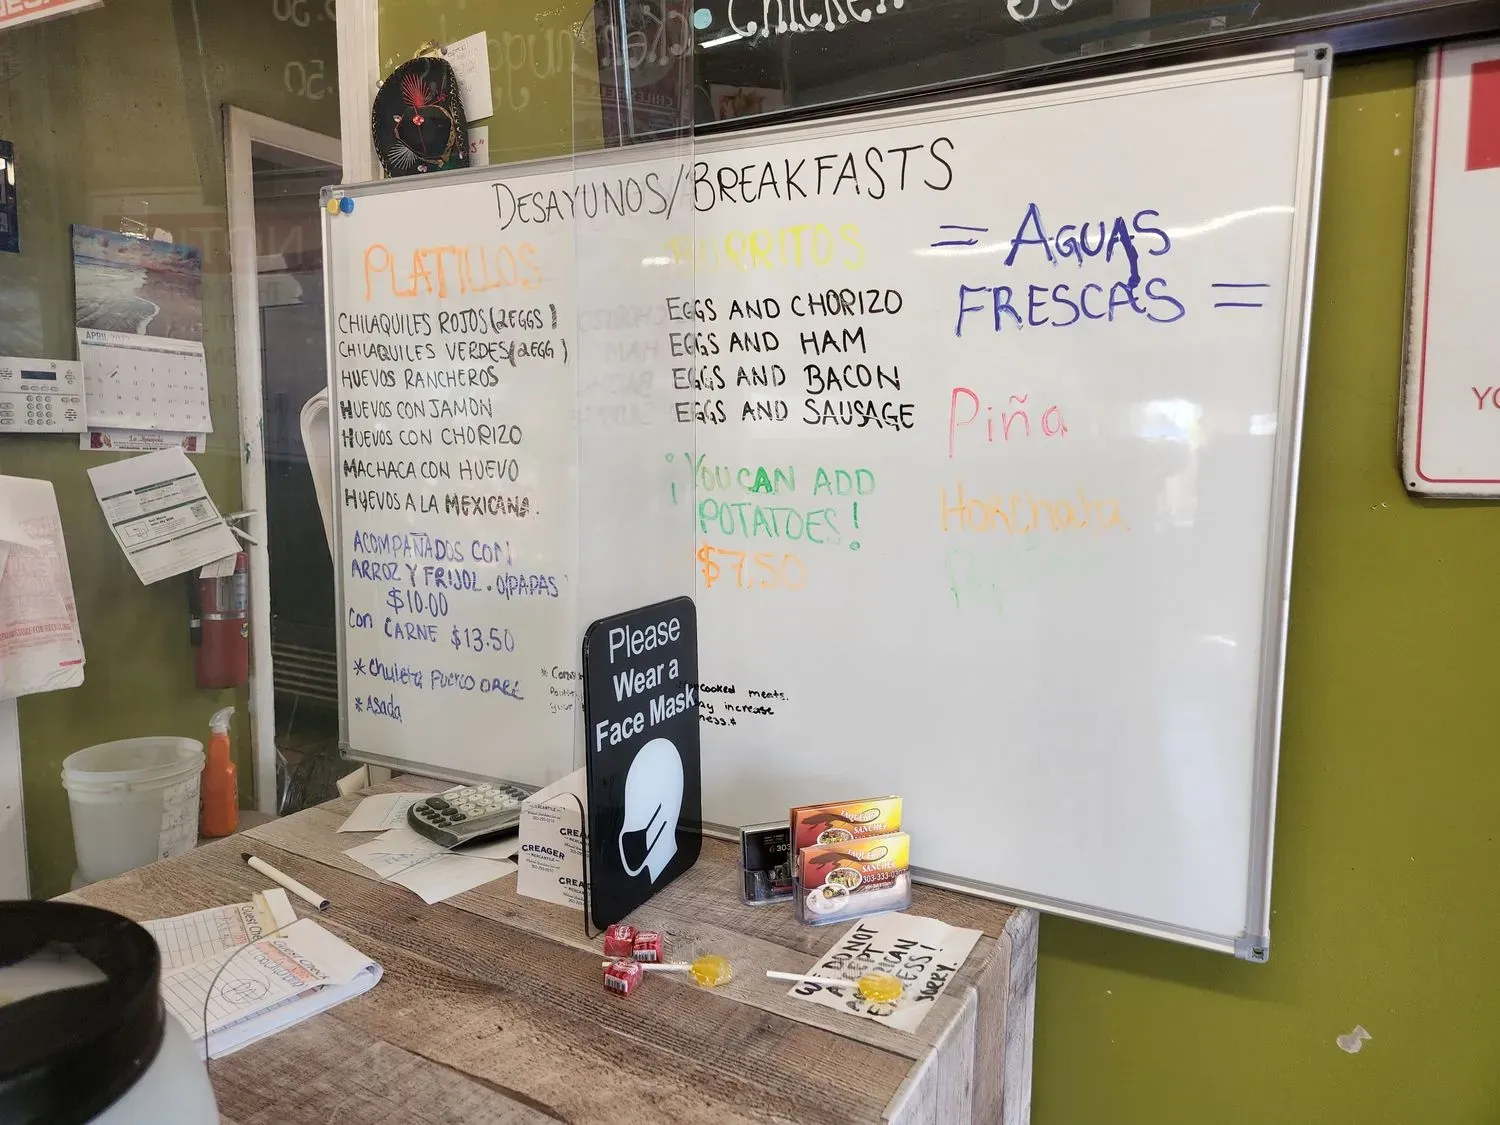 DESAYUNOS/BREAKFASTS
PLATILLOS
CHILAQUILES ROJOS (2EGGS)
CHILAQUILES VERDES (2EGG)
HUEVOS RANCHEROS
HUEVOS CON JAMON
HUEVOS CON CHORIZO
MACHACA CON HUEVO
HUEVOS A LA MEXICANA.
ACOMPAÑADOS CON
ARROZ Y FRIJOL. O/PAPAS
$10.00
Con CARNE $13.50
* Chuleta PUERCO
* Asada
BURRITOS
EGGS AND CHORIZO
EGGS AND HAM
EGGS AND BACON
EGGS AND SAUSAGE
¡YOU CAN ADD
POTATOES!
$7.50
cooked meats.
increase
= AGUAS
FRESCAS =
Piña
Horchata
Please
Wear a
Face Mask
APRIL
CREAGER
MERCANTILE
SANCHEZ
303-333-0
WE DO NOT
ACCEPT
AMERICAN
EXPRESS!
SORRY!
Guest Check
CHICKEN
YO